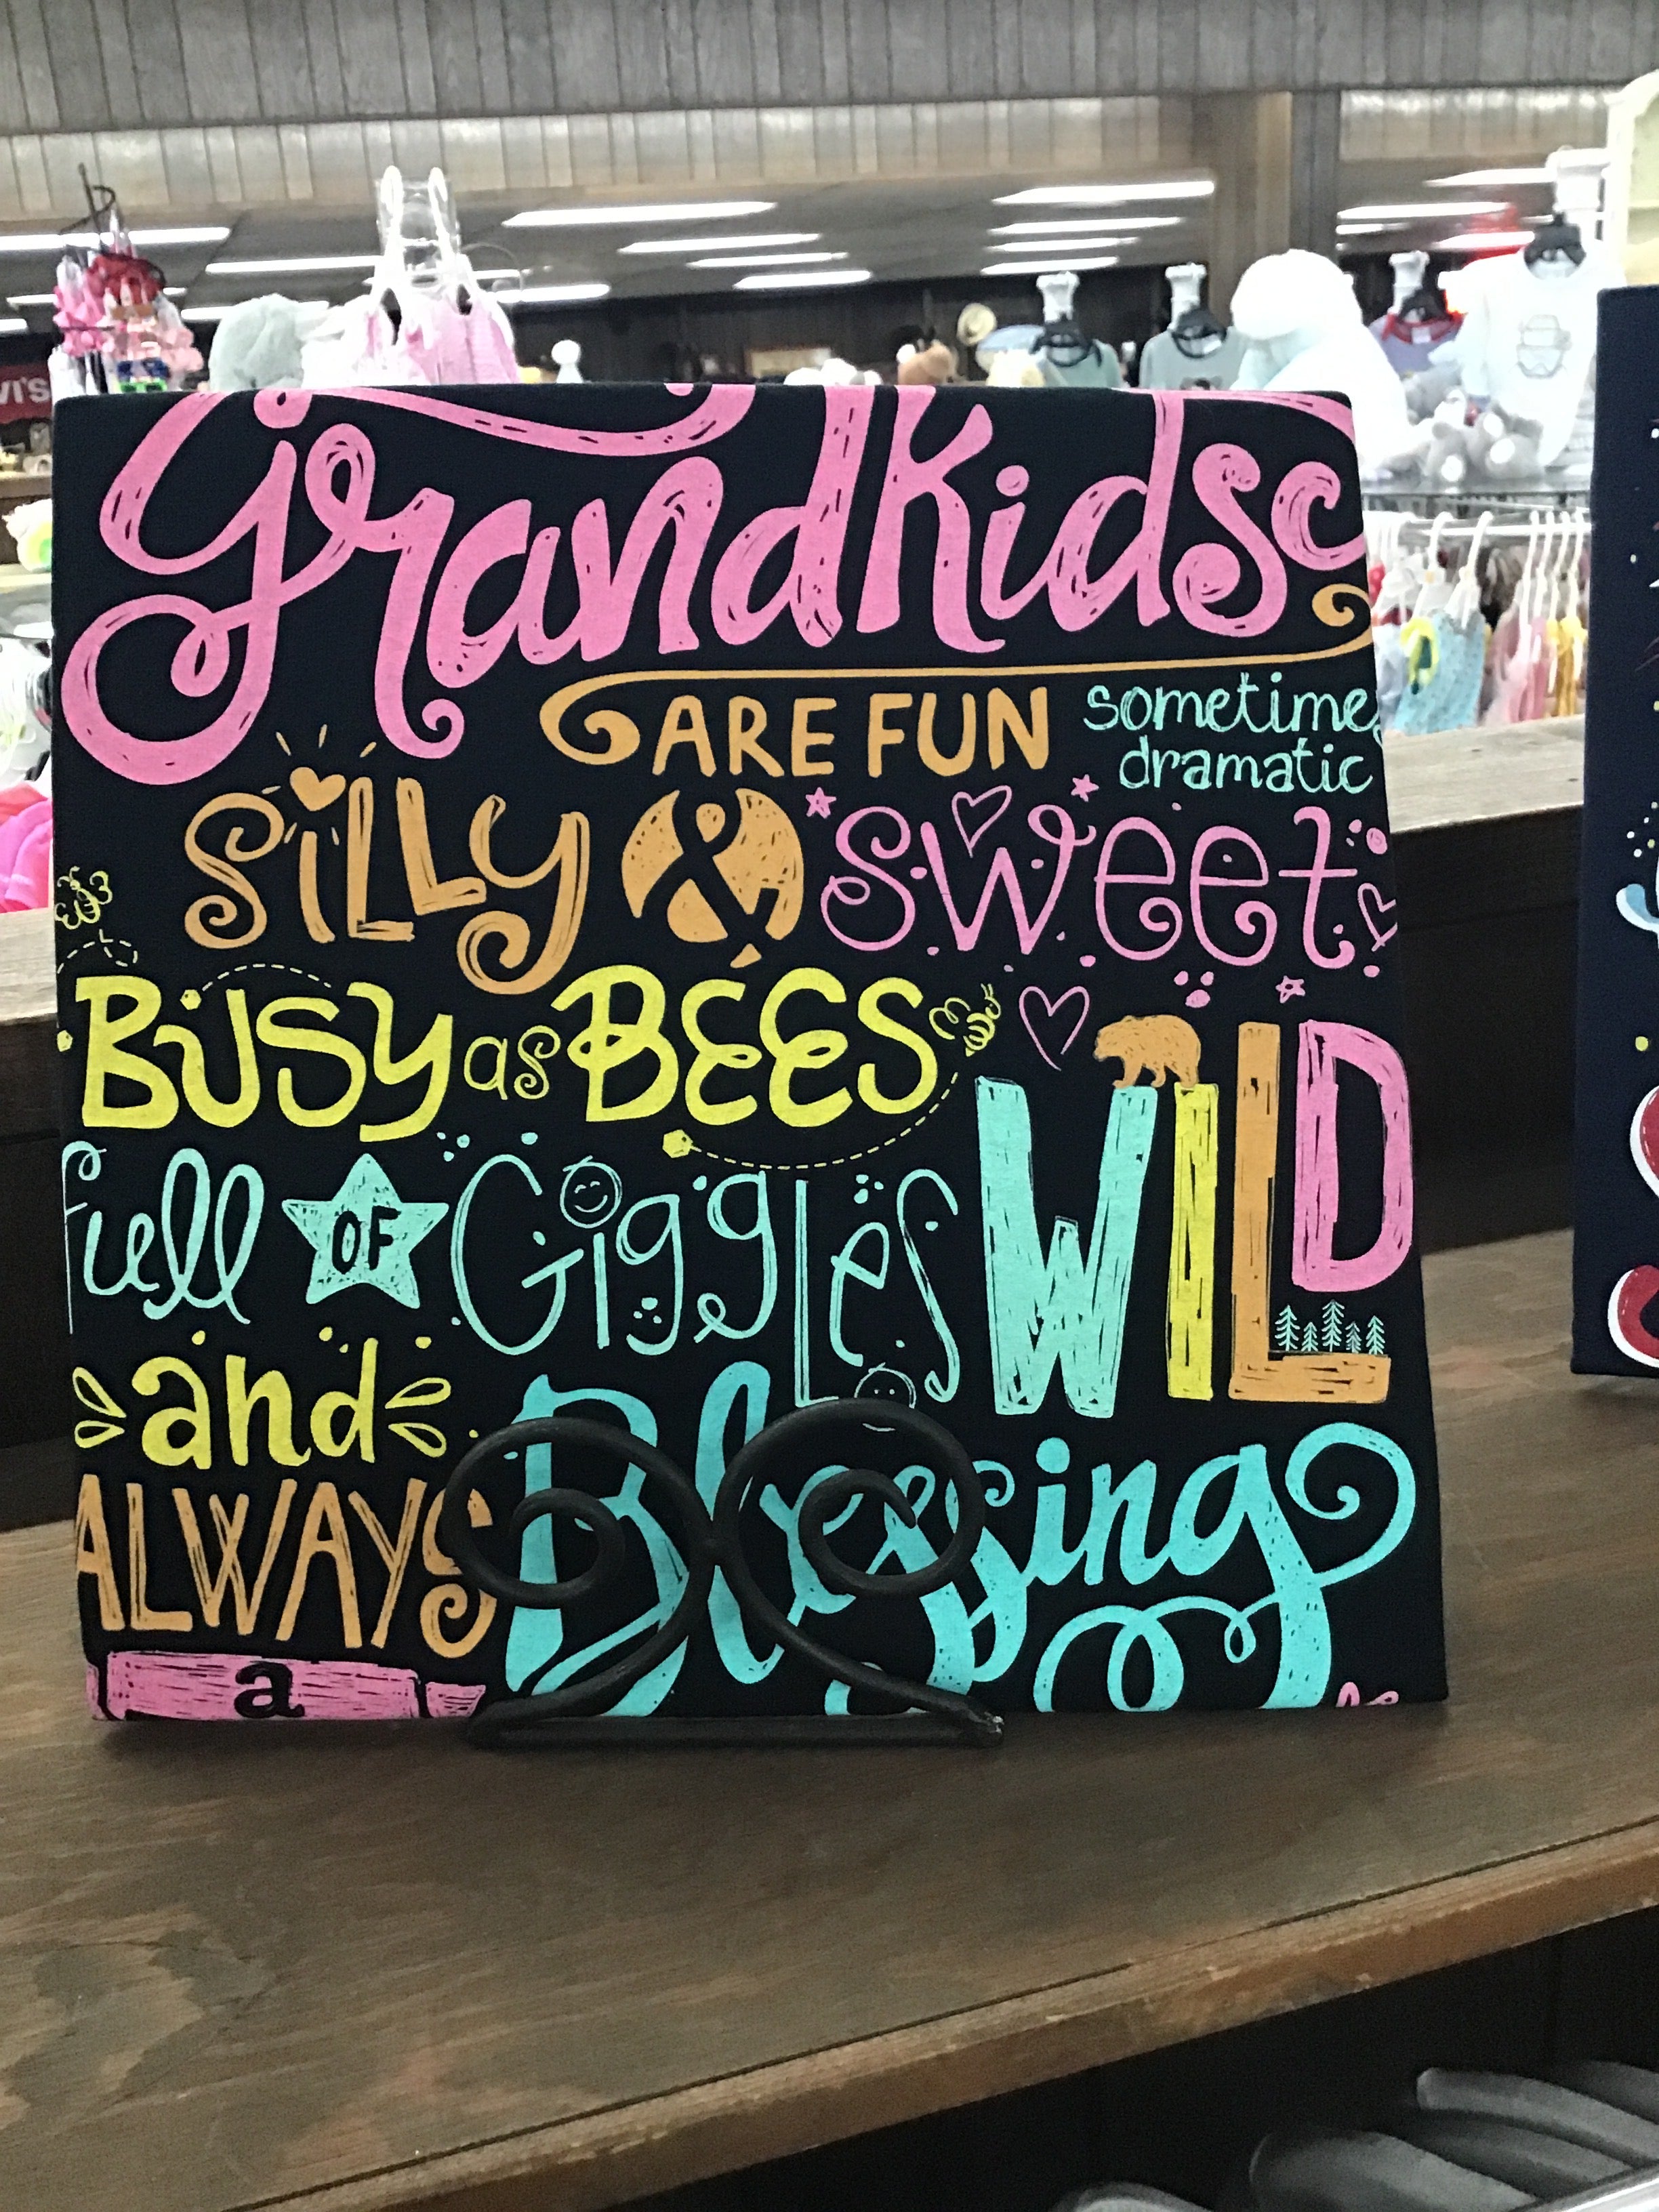 grandKidsc
ARE FUN
sometimes
dramatic
SiLLy & sweet
BUSY as BEES
WILD
full OF Giggles
and
ALWAYS
a
Blessing
VI'S